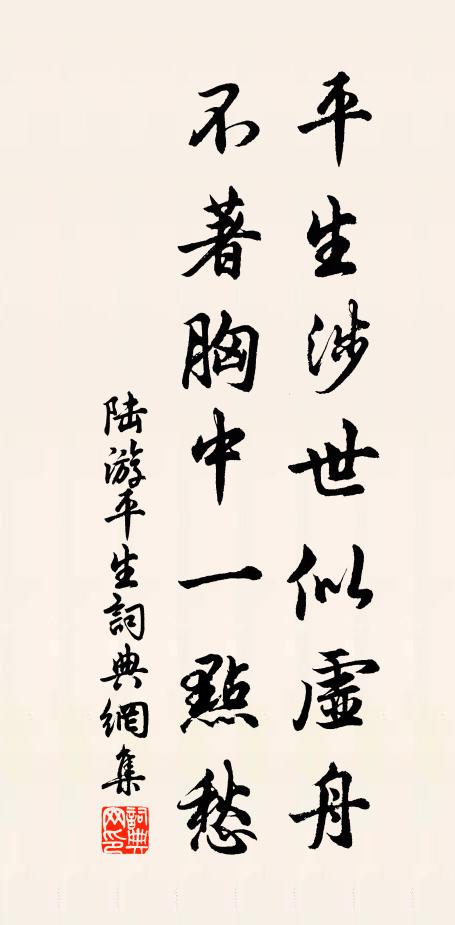 平生涉世似虛舟
不著胸中一點愁
陆游平生詞典網集
詞典网印